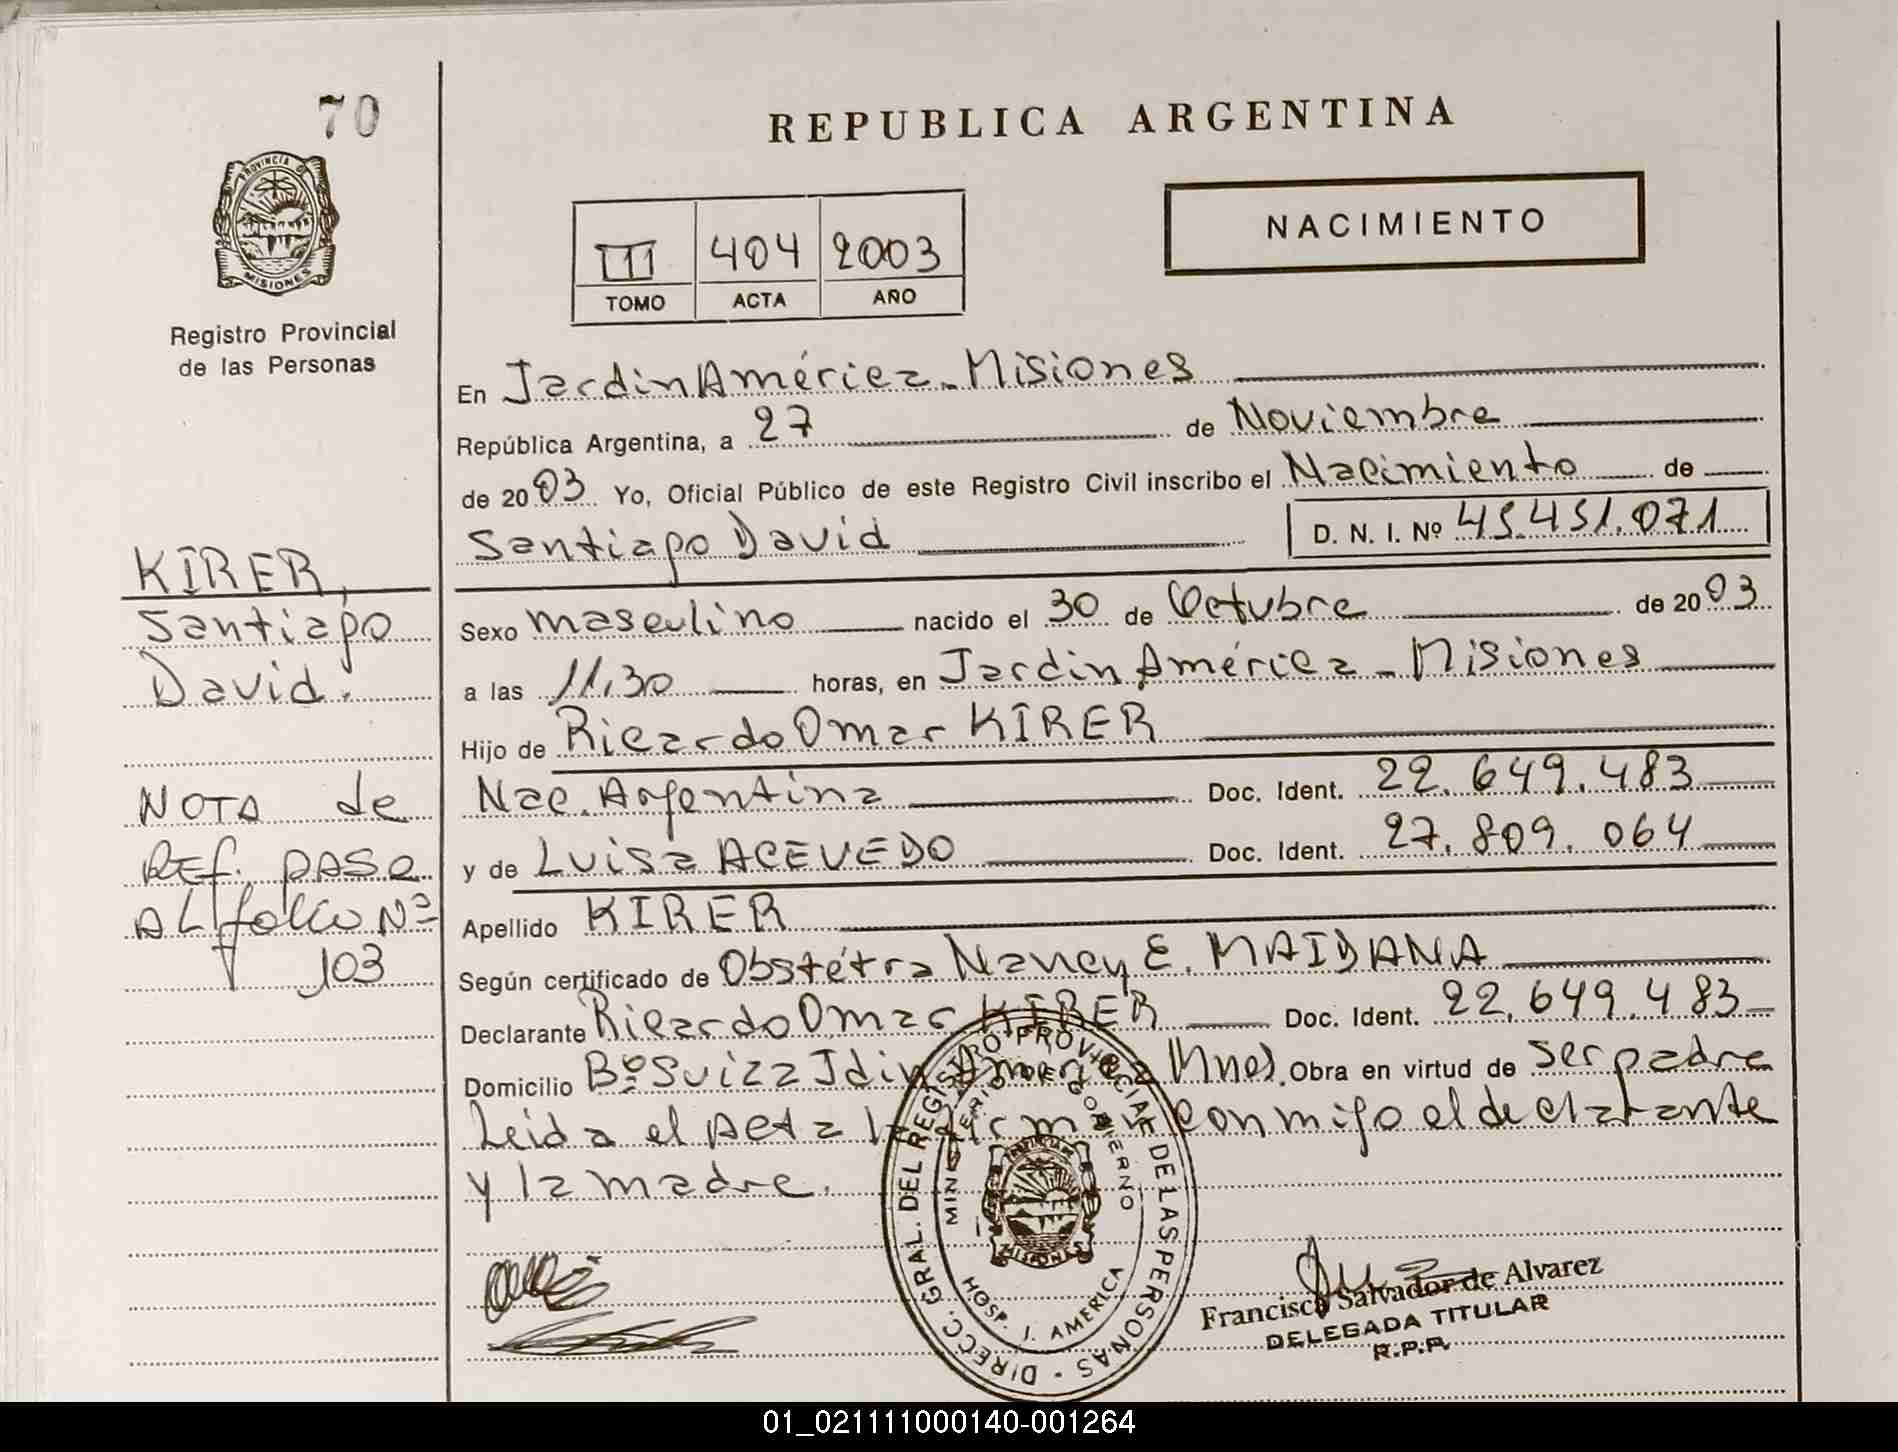 70
REPUBLICA ARGENTINA
PROVINCIA DE
MISIONES
Registro Provincial
de las Personas
NACIMIENTO
III 404 2003
TOMO ACTA AÑO
En Jardin América - Misiones
República Argentina, a 27 de Noviembre
de 2003 Yo, Oficial Público de este Registro Civil inscribo el Nacimiento de
Santiago David D. N. I. Nº 45.451.071
KIRER,
Santiago
David.
Sexo masculino nacido el 30 de Octubre de 2003
a las 11,30 horas, en Jardin América - Misiones
Hijo de Ricardo Omar KIRER
Nac. Argentina Doc. Ident. 22.649.483
y de Luisa ACEVEDO Doc. Ident. 27.809.064
Apellido KIRER
NOTA de
REF. PASA
AL folio Nº
103
Según certificado de Obstétra Nancy E. MAIDANA
Declarante Ricardo Omar KIRER Doc. Ident. 22.649.483
Domicilio Bº Suiza Jdin América Mnes. Obra en virtud de ser padre
Leída el acta la firman conmigo el declarante
y la madre.
DIRECC. GRAL. DEL REGISTRO PROVINCIAL DE LAS PERSONAS
MINISTERIO DE GOBIERNO
MISIONES
HOSP. J. AMERICA
Francisca Salvador de Alvarez
DELEGADA TITULAR
R.P.P.
01_021111000140-001264